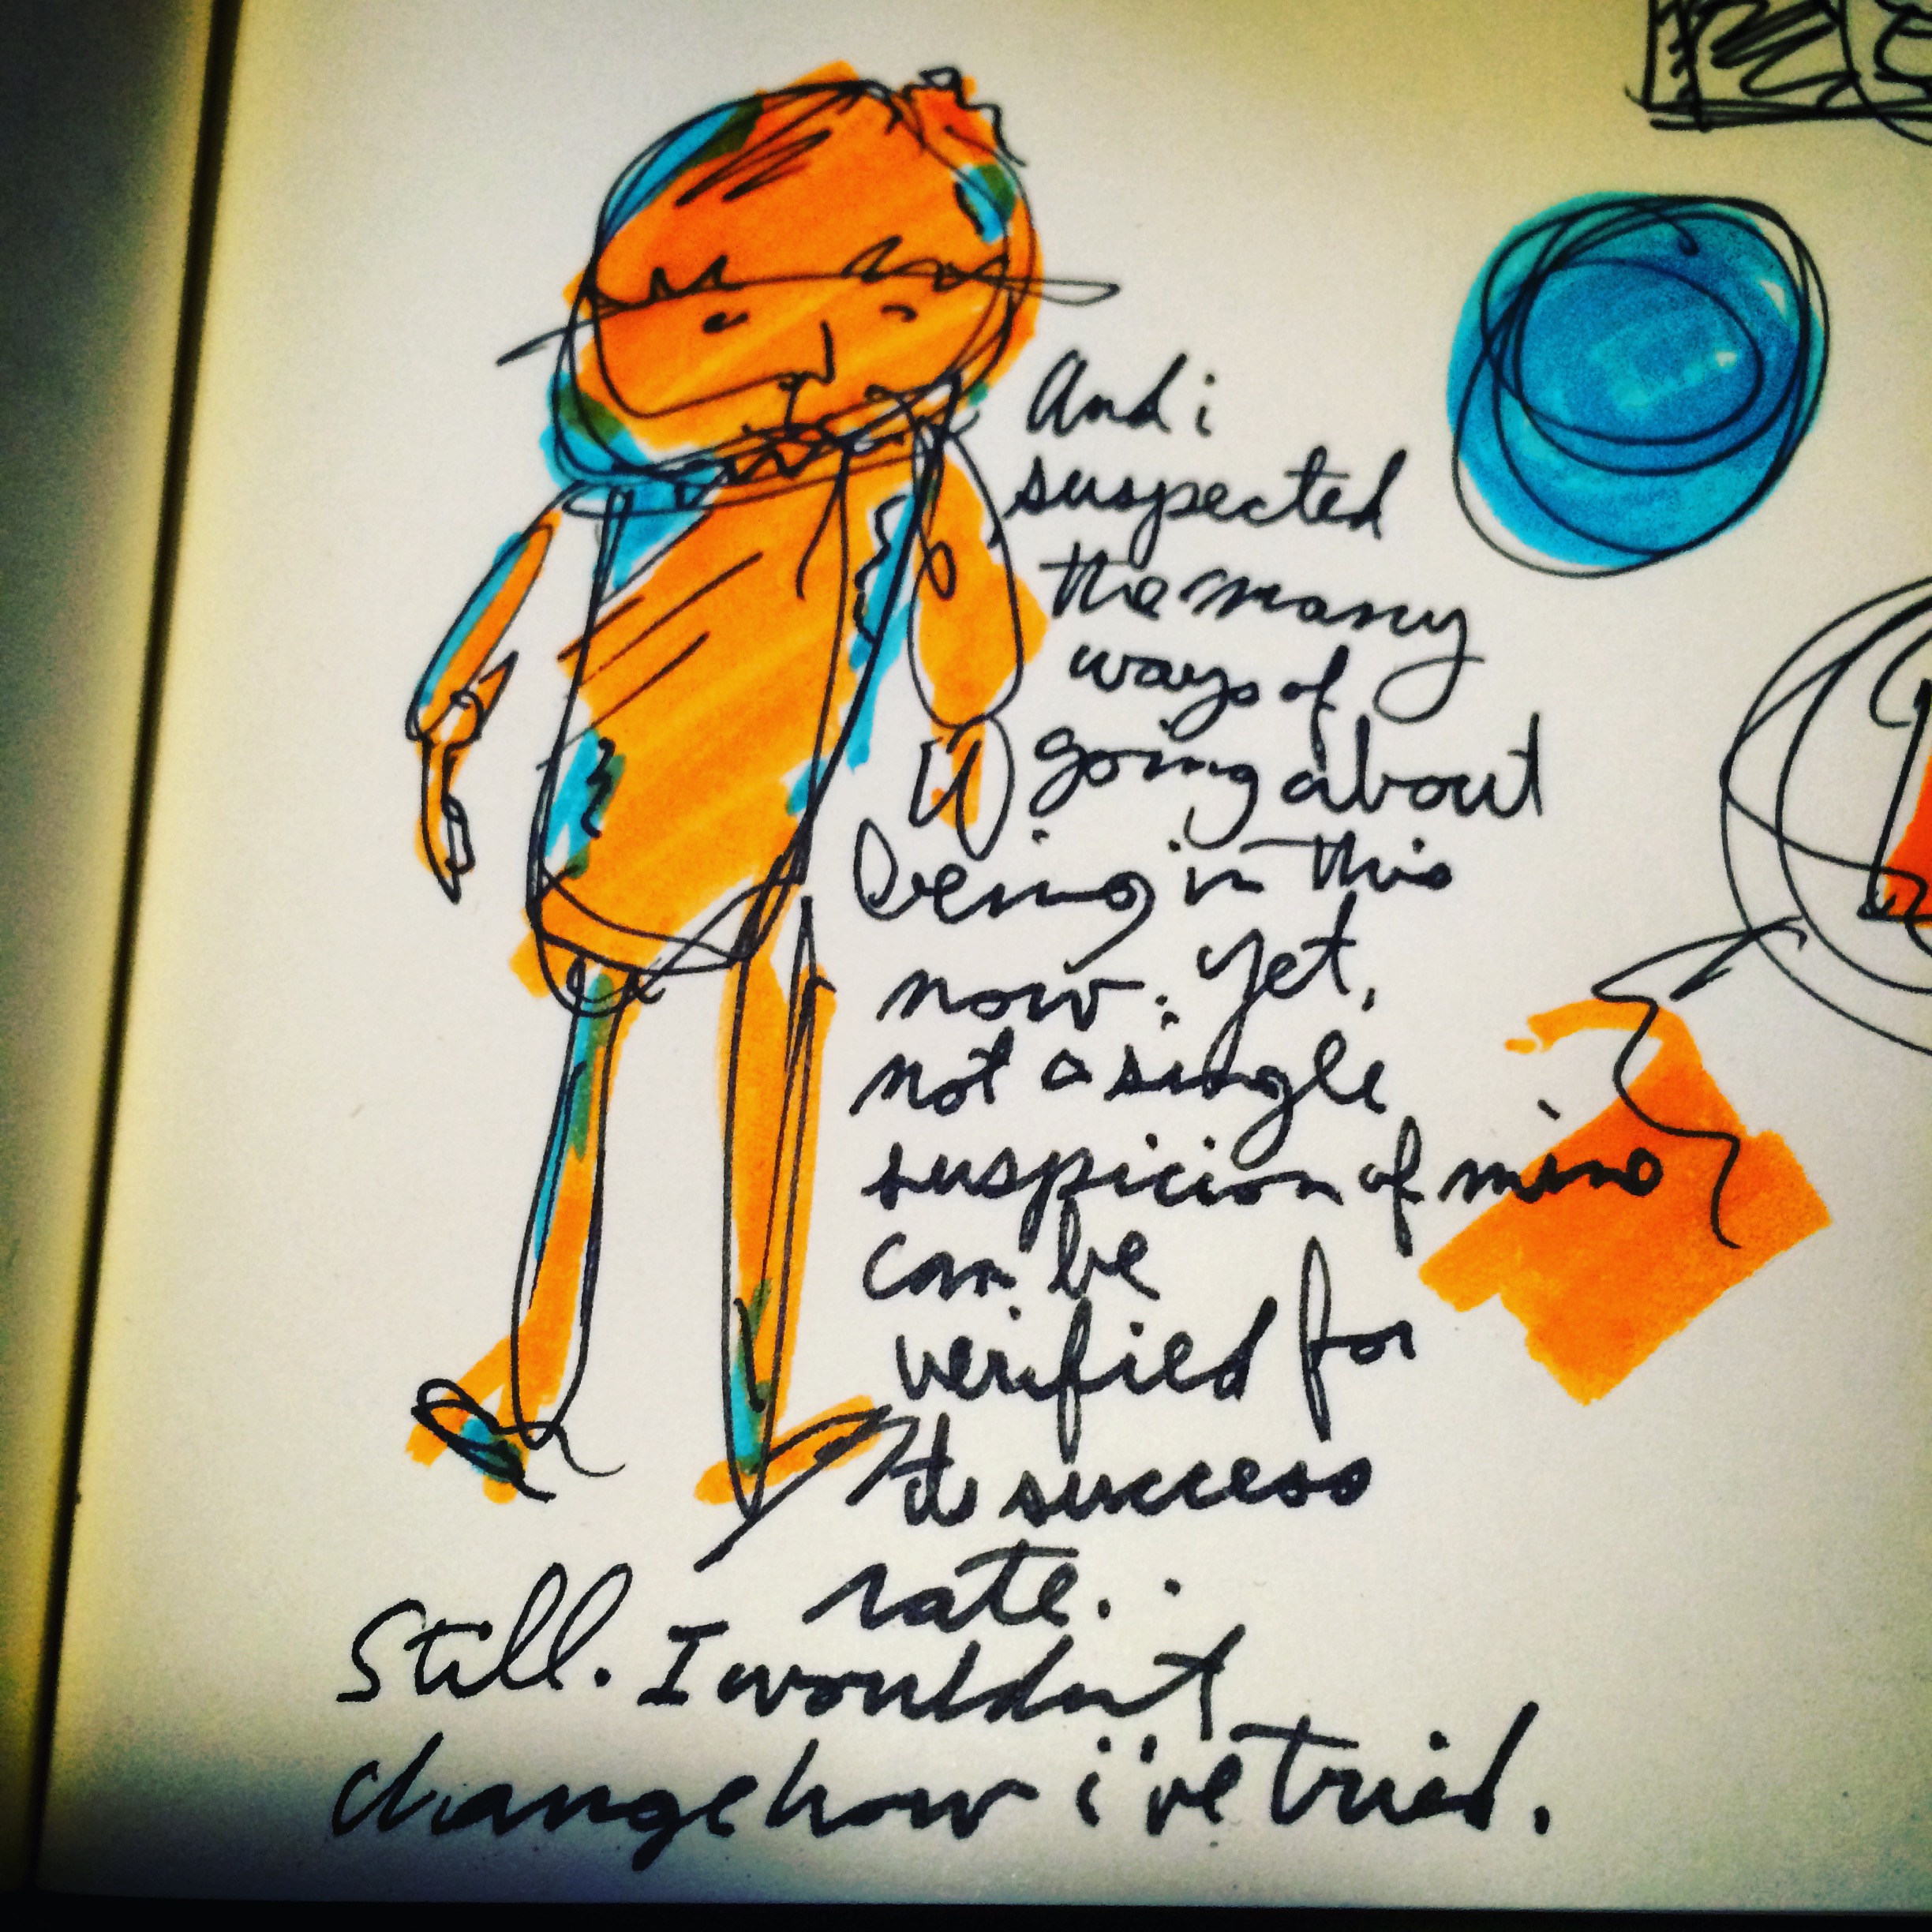 And i
suspected
the many
ways of
going about
being in this
now. yet,
not a single
suspicion of mine
can be
verified for
its success
rate.
Still. I wouldn't
change how i've tried.